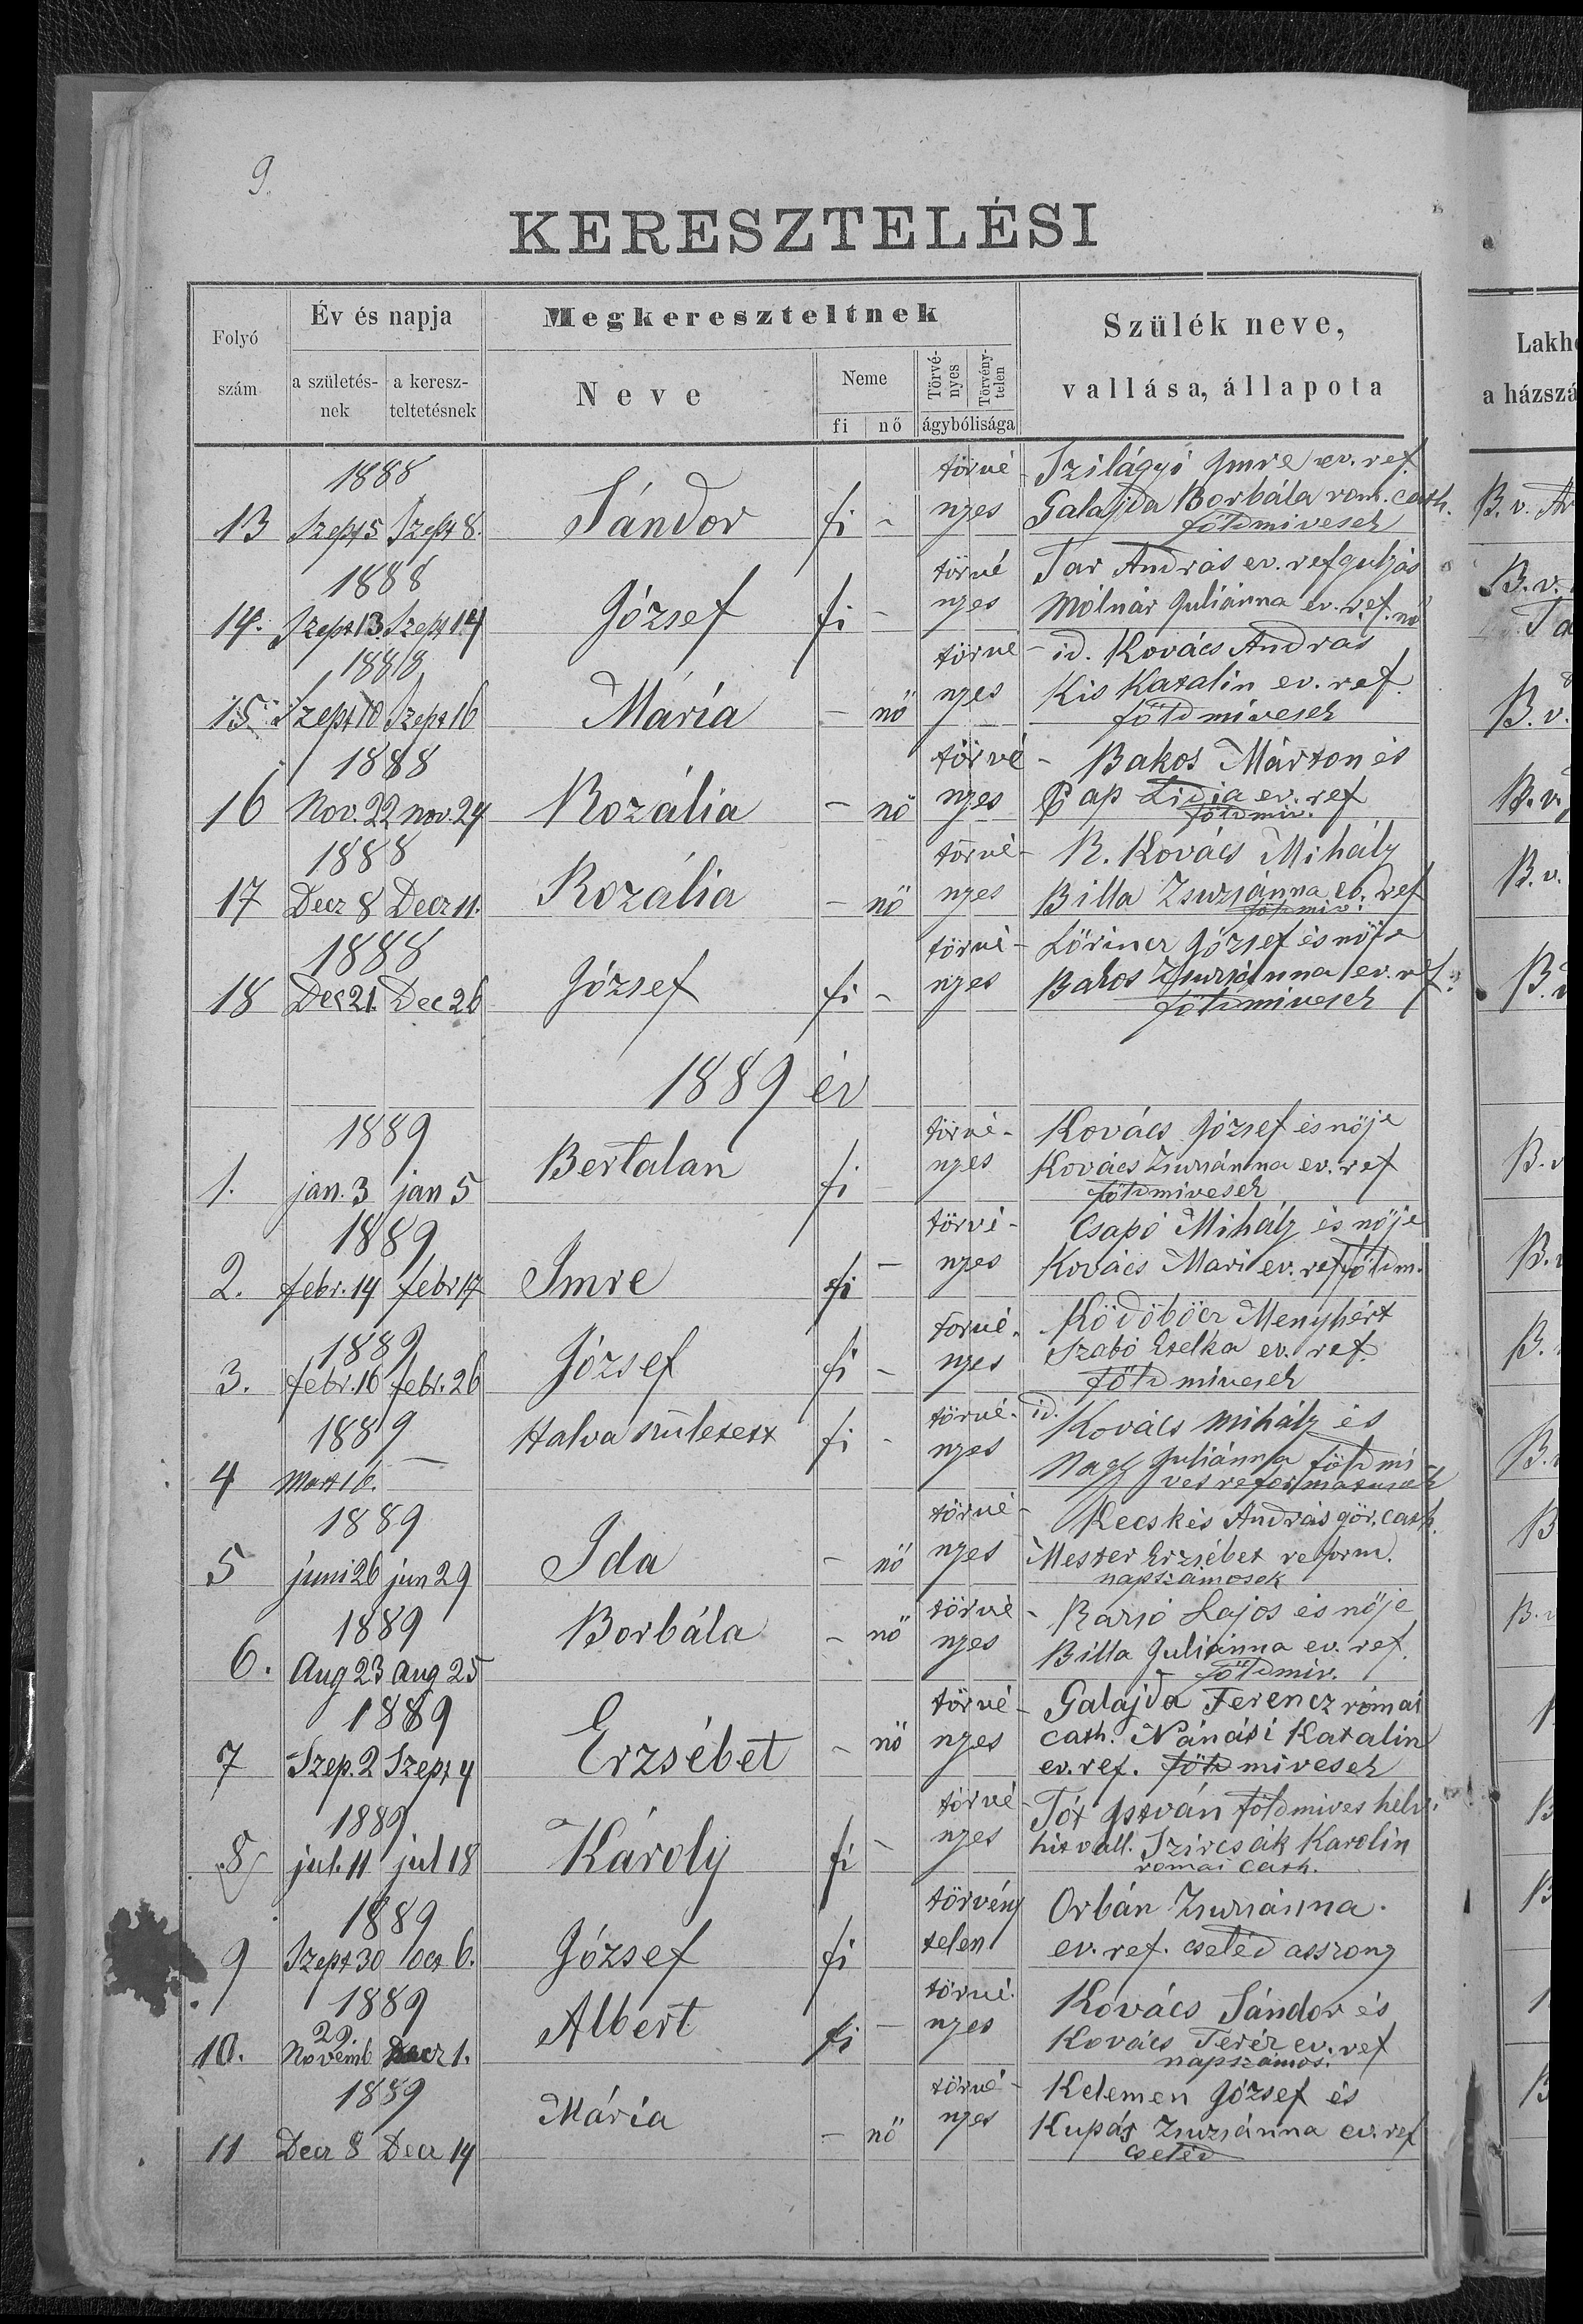 9.
KERESZTELÉSI
Folyó szám
Év és napja
a születés-nek
a keresz-teltetésnek
Megkereszteltnek
Neve
Neme
fi nő
Törvé-nyes
Törvény-telen
ágybólisága
Szülék neve,
vallása, állapota
Lakh
a házszá
1888 törvé- Szilágyi Imre ev. ref.
13 Szept 5 Szept 8. Sándor fi - nyes Galajda Borbála rom. cath. B. v.
földmivesek
1888 törvé Tar András ev. ref gulyás B. v.
14. Szept 13 Szept 14 József fi - nyes Mólnár Juliánna ev. ref. nő Ta
1888 törvé- id. Kovács András
15 Szept 10 Szept 16 Mária - nő nyes Kis Katalin ev. ref. B. v.
földmivesek
1888 törvé- Bakos Márton és
16 Nov. 22 nov. 24 Rozália - nő nyes Pap Lidia ev. ref B. v.
földmiv.
1888 törvé- R. Kovács Mihály
17 Decz 8 Decz 11. Rozália - nő nyes Billa Zsuzsánna ev. ref B. v.
földmiv.
1888 törvé- Lőrincz József és nője
18 Dec 21. Dec 26 József fi - nyes Bakos Zsuzsánna ev. ref. B. v
földmivesek
1889 év
1889 törvé- Kovács József és nője
1. jan. 3 jan 5 Bertalan fi nyes Kovács Zsuzsánna ev. ref B. v
földmivesek
1889 törvé- Csapó Mihály és nője
2. febr. 14 febr 17 Imre fi - nyes Kovács Mari ev. ref földm. B. v
1889 törvé- Ködöböcz Menyhért
3. febr. 16 febr. 26 József fi - nyes Szabó Etelka ev. ref. B.
földmivesek
1889 Halva született fi - törvé- id. Kovács Mihály és
4 Mart 16. - nyes Nagy Juliánna földmi B.
ves reformatusok
1889 törvé- Kecskés András gör. cath.
5 juni 26 jun 29 Ida - nő nyes Mester Erzsébet reform. B
napszámosok
1889 törvé- Lajos és nője
6. Aug 23 Aug 25 Borbála - nő nyes Billa Juliánna ev. ref. B. v
földmiv.
1889 törvé- Galajda Ferencz római
7 Szep. 2 Szept 4 Erzsébet - nő nyes cath. Nánási Katalin
ev. ref. földmivesek
1889 törvé- Tót István földmives helv.
8 jul. 11 jul 18 Károly fi - nyes hitvall. Szircsák Karolin B
romai cath.
1889 törvény Orbán Zsuzsánna. B
9 Szept 30 Oct 6. József fi telen ev. ref. cseléd asszony
1889 törvé- Kovács Sándor és
29.
10. Novemb Decz 1. Albert fi - nyes Kovács Teréz ev. ref
napszámos.
1889 törvé- Kelemen József és
11 Decz 8 Decz 14 Mária - nő nyes Kupás Zsuzsánna ev. ref B
cseléd